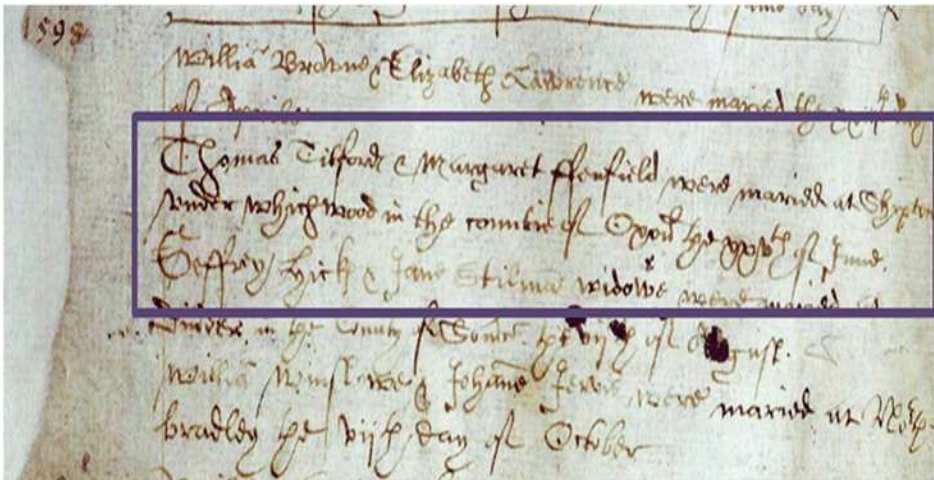 1598
Williã Browne & Elizabeth Lawrence were maried the
of Aprill
Thomas Tilford & Margaret ffenfield were maried at Shipton
under whichwood in the countie of Oxon the xxvth of June.
Geffrey Hick & Jane Stilmã widowe were maried at
in the County of Somst. the vijth of August.
Williã Winslowe & Johane were maried at North
bradley the vijth day of October